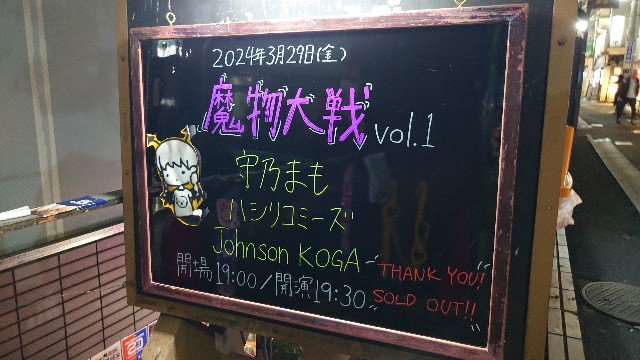 2024年3月29日(金)
魔物大戦 vol.1
宇乃まも
ハシリコミーズ
Johnson KOGA
開場19:00/開演19:30
"THANK YOU!
SOLD OUT!!"